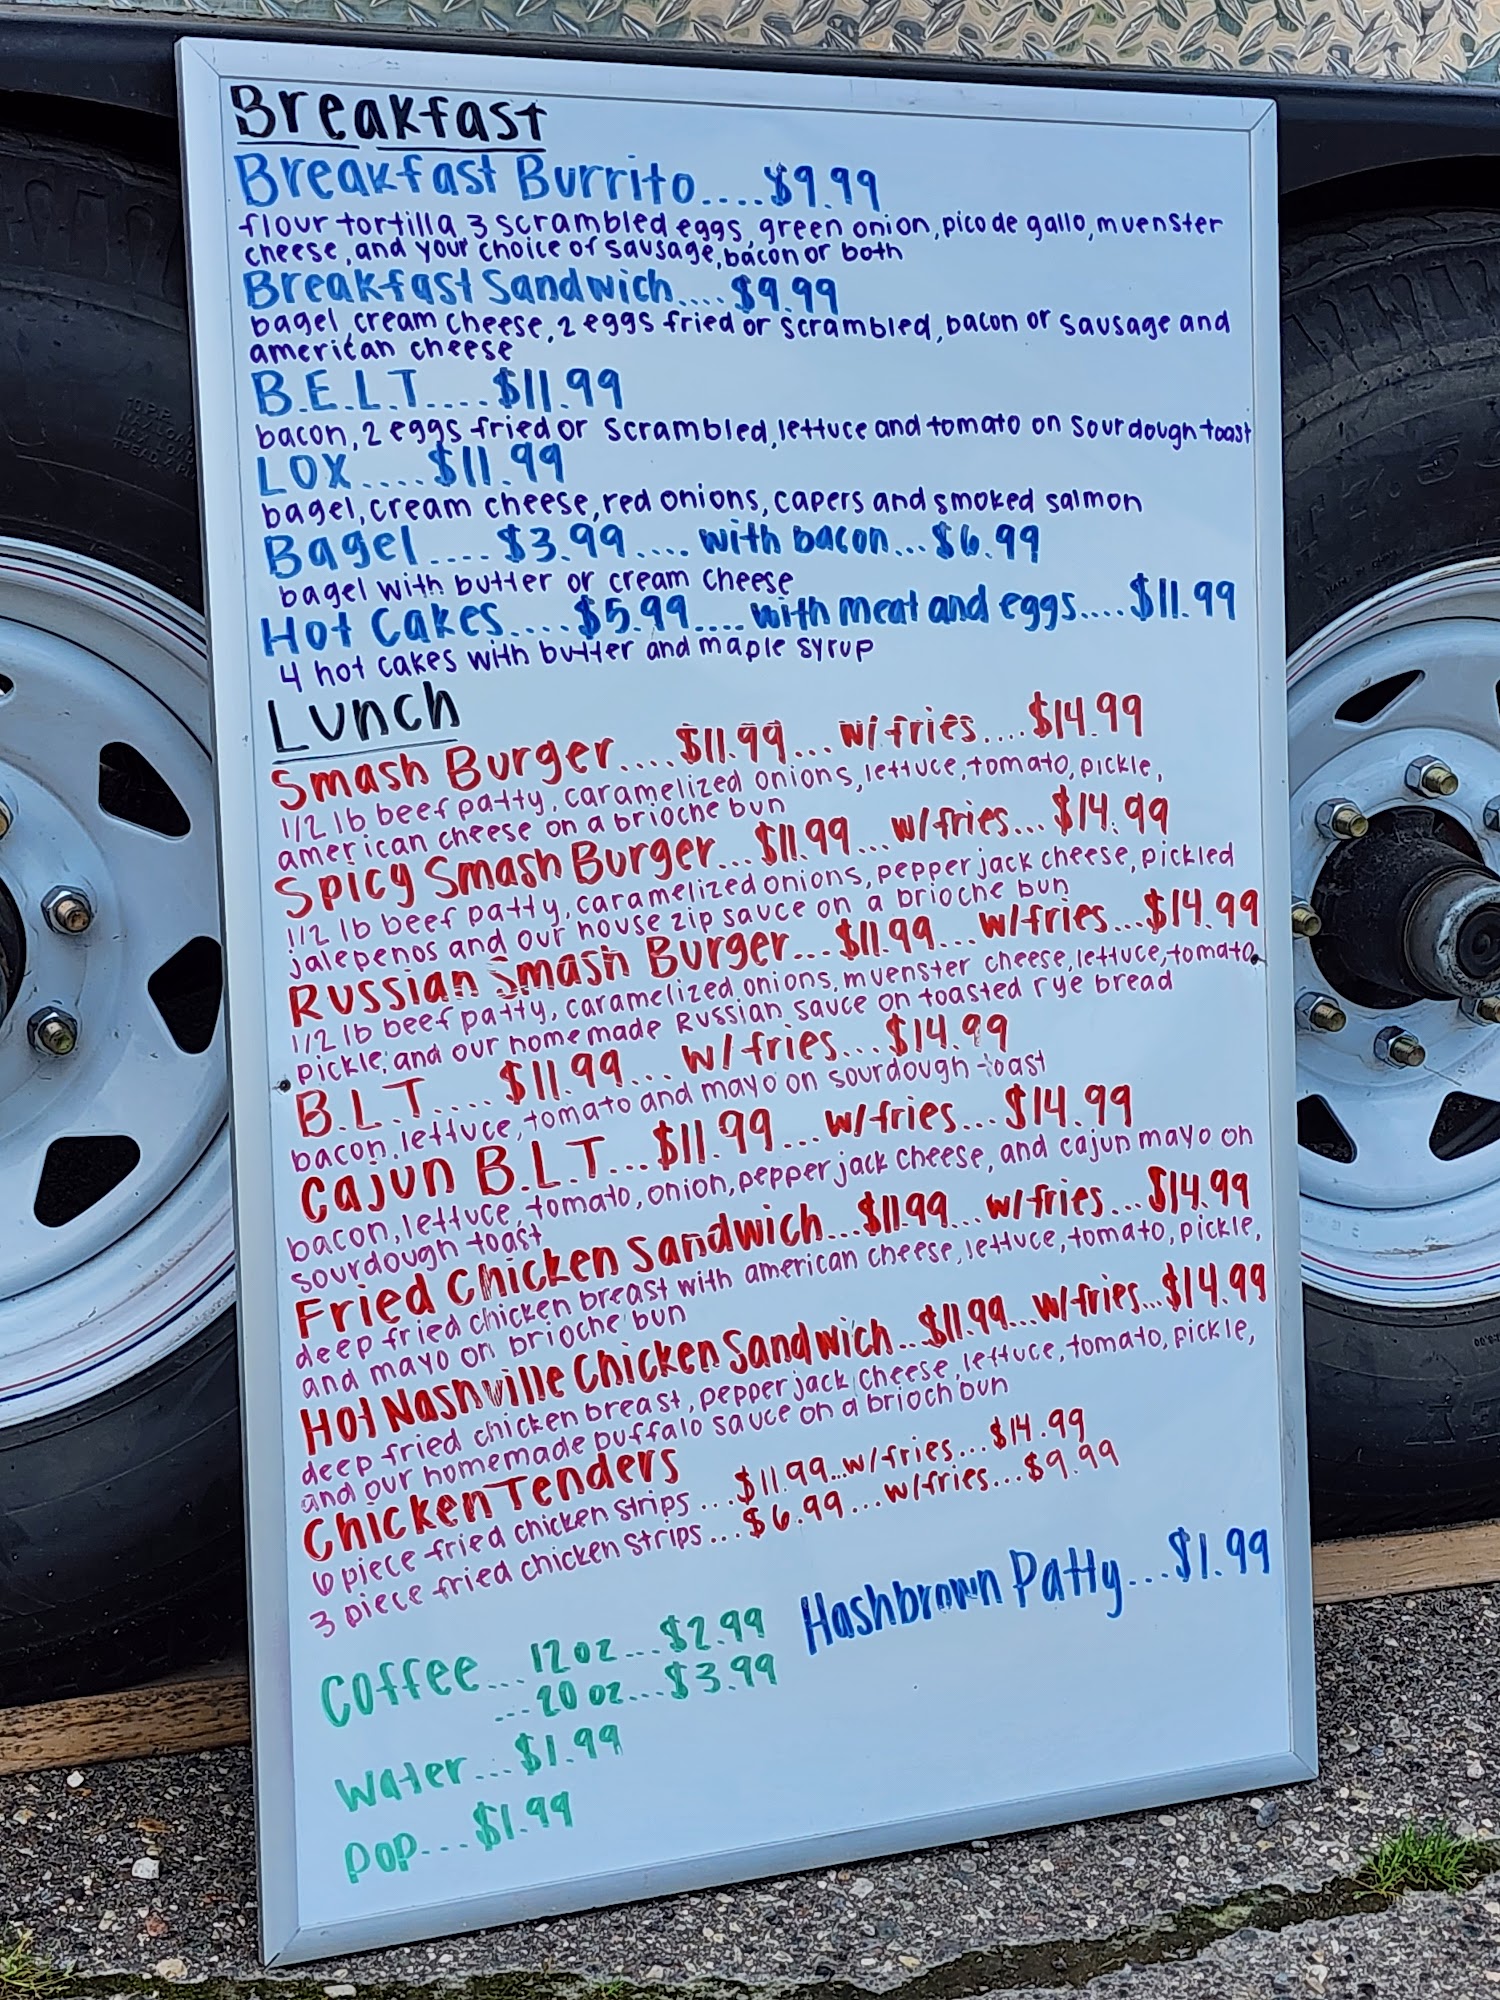 Breakfast
Breakfast Burrito....$9.99
flour tortilla 3 scrambled eggs, green onion, pico de gallo, muenster
cheese, and your choice of sausage, bacon or both
Breakfast Sandwich....$9.99
bagel, cream cheese, 2 eggs fried or scrambled, bacon or sausage and
american cheese
B.E.L.T....$11.99
bacon, 2 eggs fried or scrambled, lettuce and tomato on sourdough toast
LOX....$11.99
bagel, cream cheese, red onions, capers and smoked salmon
Bagel....$3.99.... with bacon...$6.99
bagel with butter or cream cheese
Hot Cakes....$5.99....with meat and eggs....$11.99
4 hot cakes with butter and maple syrup
Lunch
Smash Burger....$11.99...w/fries....$14.99
1/2 lb beef patty, caramelized onions, lettuce, tomato, pickle,
american cheese on a brioche bun
Spicy Smash Burger...$11.99...w/fries...$14.99
1/2 lb beef patty, caramelized onions, pepper jack cheese, pickled
jalepenos and our house zip sauce on a brioche bun
Russian Smash Burger...$11.99...w/fries...$14.99
1/2 lb beef patty, caramelized onions, muenster cheese, lettuce, tomato,
pickle, and our homemade Russian sauce on toasted rye bread
B.L.T....$11.99... w/fries...$14.99
bacon, lettuce, tomato and mayo on sourdough toast
Cajun B.L.T...$11.99...w/fries...$14.99
bacon, lettuce, tomato, onion, pepper jack cheese, and cajun mayo on
sourdough toast
Fried Chicken Sandwich...$11.99...w/fries...$14.99
deep fried chicken breast with american cheese, lettuce, tomato, pickle,
and mayo on brioche bun
Hot Nashville Chicken Sandwich...$11.99...w/fries...$14.99
deep fried chicken breast, pepper jack cheese, lettuce, tomato, pickle,
and our homemade buffalo sauce on a brioch bun
Chicken Tenders
6 piece fried chicken strips ...$11.99...w/fries...$14.99
3 piece fried chicken strips...$6.99...w/fries...$9.99
Hashbrown Patty...$1.99
Coffee...12oz...$2.99
...20oz...$3.99
Water...$1.99
Pop...$1.99